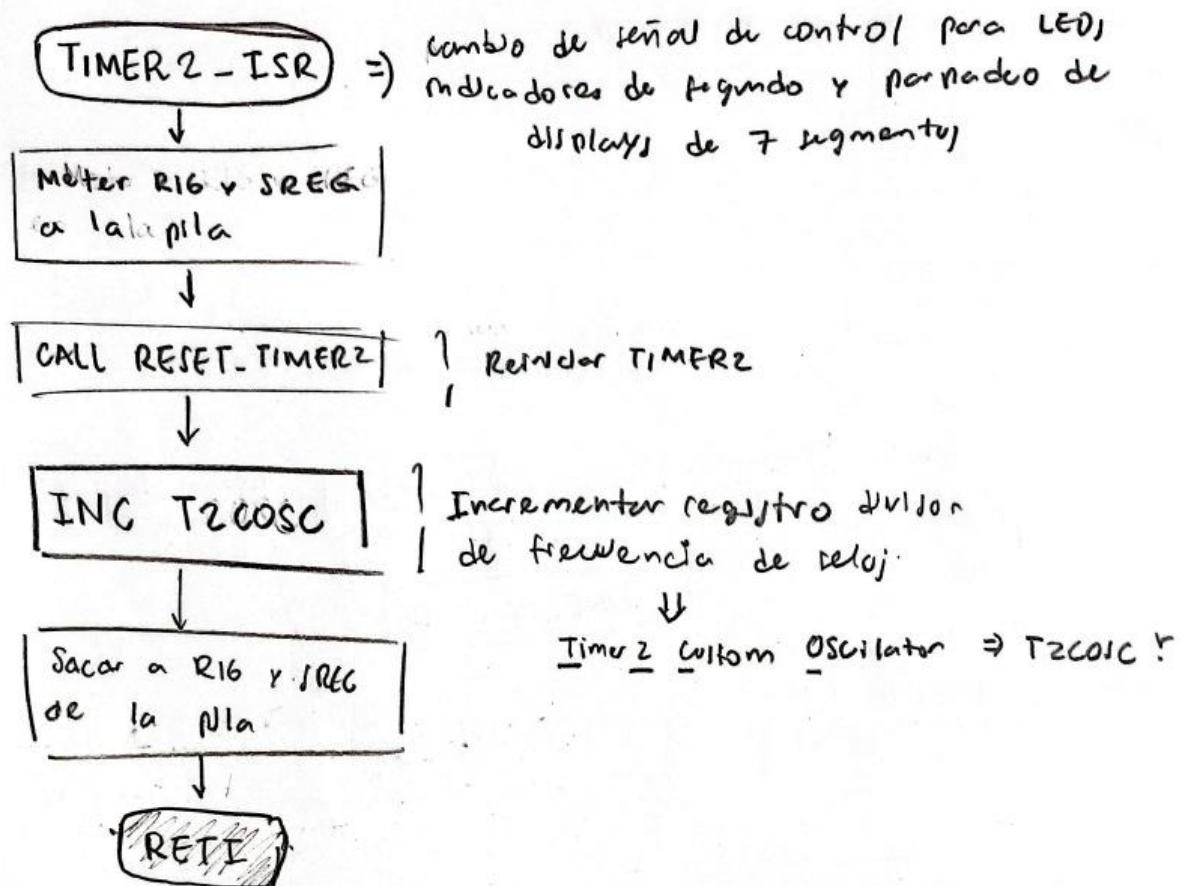 TIMER2_ISR ⇒ cambio de señal de control para LEDs
indicadores de segundo y parpadeo de
displays de 7 segmentos
Meter R16 y SREG
a la pila
CALL RESET_TIMER2
Reiniciar TIMER2
INC T2COSC
Incrementar registro divisor
de frecuencia de reloj.
⇓
Timer 2 Custom OScilator ⇒ T2COSC
Sacar a R16 y SREG
de la pila
RETI